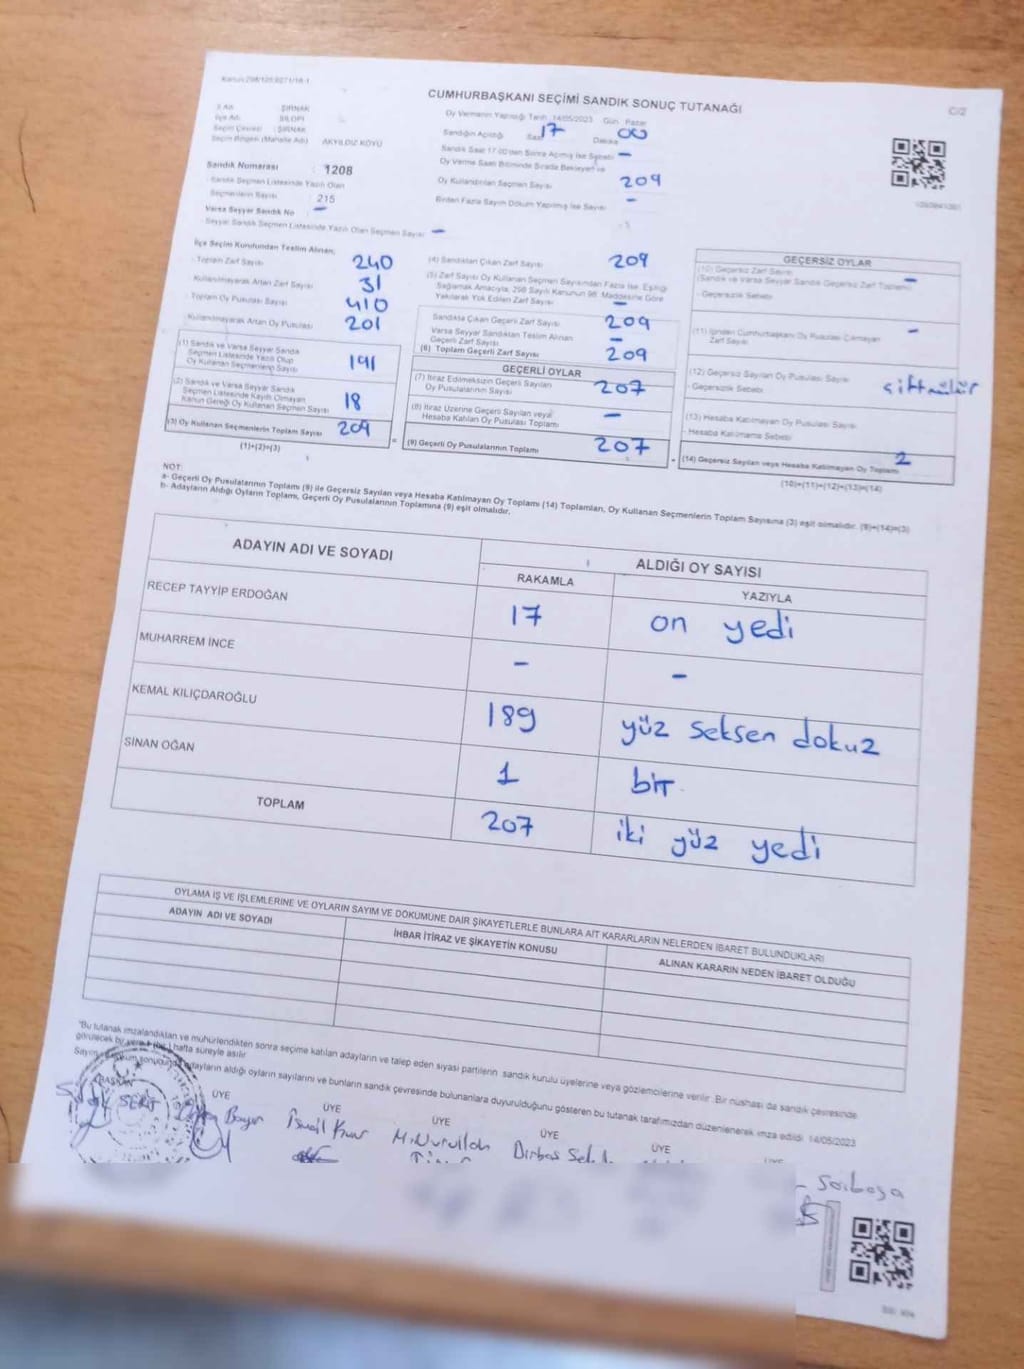 Kanun:298/105,6271/16-1
CUMHURBAŞKANI SEÇİMİ SANDIK SONUÇ TUTANAĞI
C/2
İl Adı : ŞIRNAK
İlçe Adı : SİLOPİ
Seçim Çevresi : ŞIRNAK
Seçim Bölgesi (Mahalle Adı) : AKYILDIZ KÖYÜ
Sandık Numarası : 1208
Sandık Seçmen Listesinde Yazılı Olan
Seçmenlerin Sayısı : 215
Varsa Seyyar Sandık No : -
Seyyar Sandık Seçmen Listesinde Yazılı Olan Seçmen Sayısı : -
Oy Vermenin Yapıldığı Tarih :14/05/2023 Gün : Pazar
Sandığın Açıldığı Saat 17 Dakika 00
Sandık Saat 17:00'den Sonra Açılmış İse Sebebi : -
Oy Verme Saati Bitiminde Sırada Bekleyen ve
Oy Kullandırılan Seçmen Sayısı 209
Birden Fazla Sayım Döküm Yapılmış İse Sayısı -
İlçe Seçim Kurulundan Teslim Alınan;
- Toplam Zarf Sayısı 240
- Kullanılmayarak Artan Zarf Sayısı 31
- Toplam Oy Pusulası Sayısı 410
- Kullanılmayarak Artan Oy Pusulası 201
(1) Sandık ve Varsa Seyyar Sandık
Seçmen Listesinde Yazılı Olup
Oy Kullanan Seçmenlerin Sayısı 191
(2) Sandık ve Varsa Seyyar Sandık
Seçmen Listesinde Kayıtlı Olmayan
Kanun Gereği Oy Kullanan Seçmen Sayısı 18
(3) Oy Kullanan Seçmenlerin Toplam Sayısı 209
(1)+(2)=(3)
(4) Sandıktan Çıkan Zarf Sayısı 209
(5) Zarf Sayısı Oy Kullanan Seçmen Sayısından Fazla İse, Eşitliği
Sağlamak Amacıyla, 298 Sayılı Kanunun 98. Maddesine Göre
Yakılarak Yok Edilen Zarf Sayısı -
Sandıkta Çıkan Geçerli Zarf Sayısı 209
Varsa Seyyar Sandıktan Teslim Alınan
Geçerli Zarf Sayısı -
(6) Toplam Geçerli Zarf Sayısı 209
GEÇERLİ OYLAR
(7) İtiraz Edilmeksizin Geçerli Sayılan
Oy Pusulalarının Sayısı 207
(8) İtiraz Üzerine Geçerli Sayılan veya
Hesaba Katılan Oy Pusulası Toplamı -
(9) Geçerli Oy Pusulalarının Toplamı 207
GEÇERSİZ OYLAR
(10) Geçersiz Zarf Sayısı
(Sandık ve Varsa Seyyar Sandık Geçersiz Zarf Toplamı) -
- Geçersizlik Sebebi
(11) İçinden Cumhurbaşkanı Oy Pusulası Çıkmayan
Zarf Sayısı -
(12) Geçersiz Sayılan Oy Pusulası Sayısı
- Geçersizlik Sebebi çift mühür
(13) Hesaba Katılmayan Oy Pusulası Sayısı
- Hesaba Katılmama Sebebi
(14) Geçersiz Sayılan veya Hesaba Katılmayan Oy Toplamı 2
(10)+(11)+(12)+(13)=(14)
NOT:
a- Geçerli Oy Pusulalarının Toplamı (9) ile Geçersiz Sayılan veya Hesaba Katılmayan Oy Toplamı (14) Toplamları, Oy Kullanan Seçmenlerin Toplam Sayısına (3) eşit olmalıdır. (9)+(14)=(3)
b- Adayların Aldığı Oyların Toplamı, Geçerli Oy Pusulalarının Toplamına (9) eşit olmalıdır.
ADAYIN ADI VE SOYADI
ALDIĞI OY SAYISI
RAKAMLA YAZIYLA
RECEP TAYYİP ERDOĞAN 17 on yedi
MUHARREM İNCE - -
KEMAL KILIÇDAROĞLU 189 yüz seksen dokuz
SİNAN OĞAN 1 bir
TOPLAM 207 iki yüz yedi
OYLAMA İŞ VE İŞLEMLERİNE VE OYLARIN SAYIM VE DÖKÜMÜNE DAİR ŞİKAYETLERLE BUNLARA AİT KARARLARIN NELERDEN İBARET BULUNDUKLARI
ADAYIN ADI VE SOYADI İHBAR İTİRAZ VE ŞİKAYETİN KONUSU ALINAN KARARIN NEDEN İBARET OLDUĞU
"Bu tutanak imzalandıktan ve mühürlendikten sonra seçime katılan adayların ve talep eden siyasi partilerin sandık kurulu üyelerine veya gözlemcilerine verilir. Bir nüshası da sandık çevresinde
görülecek bir yere 1 (bir) hafta süreyle asılır.
adayların aldığı oyların sayılarını ve bunların sandık çevresinde bulunanlara duyurulduğunu gösteren bu tutanak tarafımızdan düzenlenerek imza edildi. 14/05/2023
BAŞKAN ÜYE ÜYE ÜYE ÜYE ÜYE
M.Nurullah